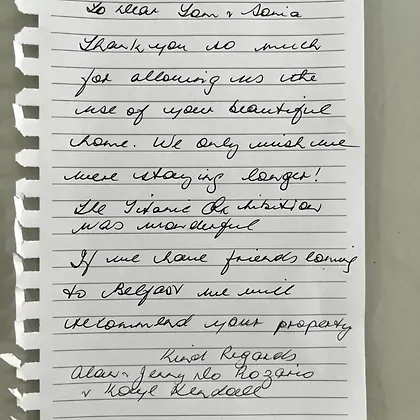 To Dear Tom & Sonia
Thank you so much
for allowing us the
use of your beautiful
home. We only wish we
were staying longer!
The Titanic Exhibition
was wonderful
If we have friends coming
to Belfast we will
recommend your property
Kind Regards
Alan & Jenny Do Rozario
& Kaye Kendall